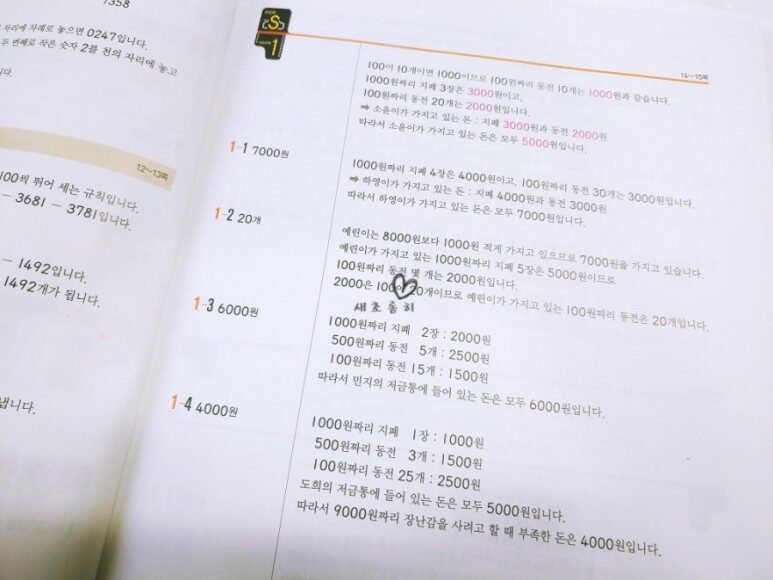 7358
자리에 차례로 놓으면 0247입니다.
두 번째로 작은 숫자 2를 천의 자리에 놓고
니다.
12~13쪽
100씩 뛰어 세는 규칙입니다.
- 3681 - 3781입니다.
1492입니다.
1492개가 됩니다.
냅니다.
1
14~15쪽
100이 10개이면 1000이므로 100원짜리 동전 10개는 1000원과 같습니다.
1000원짜리 지폐 3장은 3000원이고,
100원짜리 동전 20개는 2000원입니다.
➡ 소윤이가 가지고 있는 돈 : 지폐 3000원과 동전 2000원
따라서 소윤이가 가지고 있는 돈은 모두 5000원입니다.
1-1 7000원
1000원짜리 지폐 4장은 4000원이고, 100원짜리 동전 30개는 3000원입니다.
➡ 하영이가 가지고 있는 돈 : 지폐 4000원과 동전 3000원
따라서 하영이가 가지고 있는 돈은 모두 7000원입니다.
1-2 20개
예린이는 8000원보다 1000원 적게 가지고 있으므로 7000원을 가지고 있습니다.
예린이가 가지고 있는 1000원짜리 지폐 5장은 5000원이므로
100원짜리 동전 몇 개는 2000원입니다.
2000은 100이 20개이므로 예린이가 가지고 있는 100원짜리 동전은 20개입니다.
새초롬히
1-3 6000원
1000원짜리 지폐 2장 : 2000원
500원짜리 동전 5개 : 2500원
100원짜리 동전 15개 : 1500원
따라서 민지의 저금통에 들어 있는 돈은 모두 6000원입니다.
1-4 4000원
1000원짜리 지폐 1장 : 1000원
500원짜리 동전 3개 : 1500원
100원짜리 동전 25개 : 2500원
도희의 저금통에 들어 있는 돈은 모두 5000원입니다.
따라서 9000원짜리 장난감을 사려고 할 때 부족한 돈은 4000원입니다.